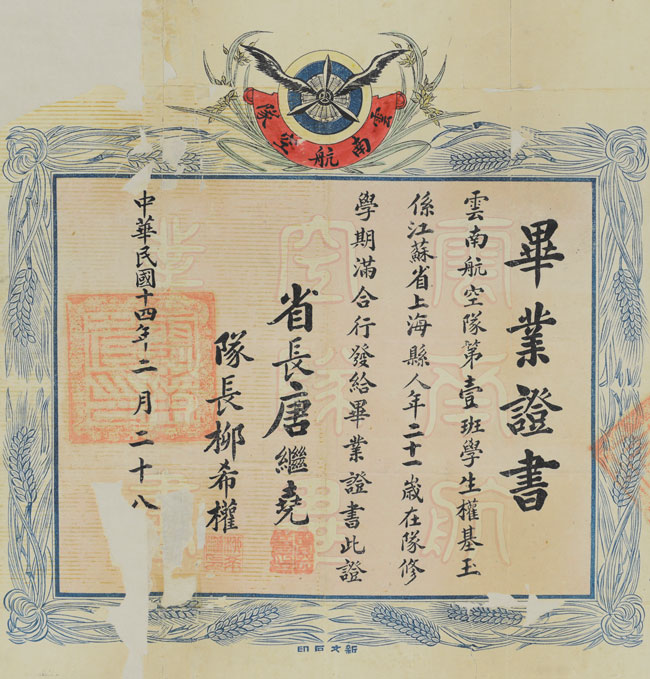 雲南航空隊
畢業證書
雲南航空隊第壹班學生權基玉
係江蘇省上海縣人年二十一歲在隊修
學期滿合行發給畢業證書此證
省長唐繼堯
隊長柳希權
中華民國十四年二月二十八
新文石印